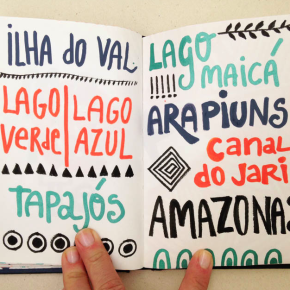 ILHA DO VAL
LAGO LAGO
VERDE AZUL
TAPAJÓS
LAGO
MAICÁ
ARAPIUNS
CANAL
DO JARI
AMAZONAS